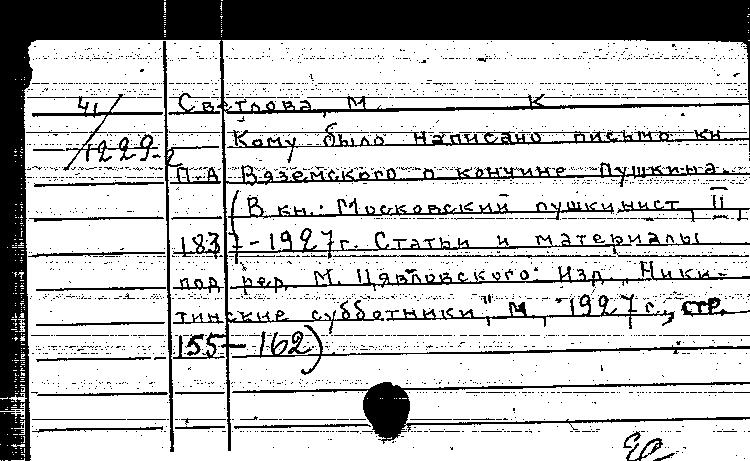 41/1229-2
Светлова, М. К
Кому было написано письмо кн.
П.А. Вяземского о кончине Пушкина.
(В кн.: Московский пушкинист, II,
1837-1927 г. Статьи и материалы
под ред. М. Цявловского. Изд. "Ники-
тинские субботники", М., 1927 г., стр.
155-162)